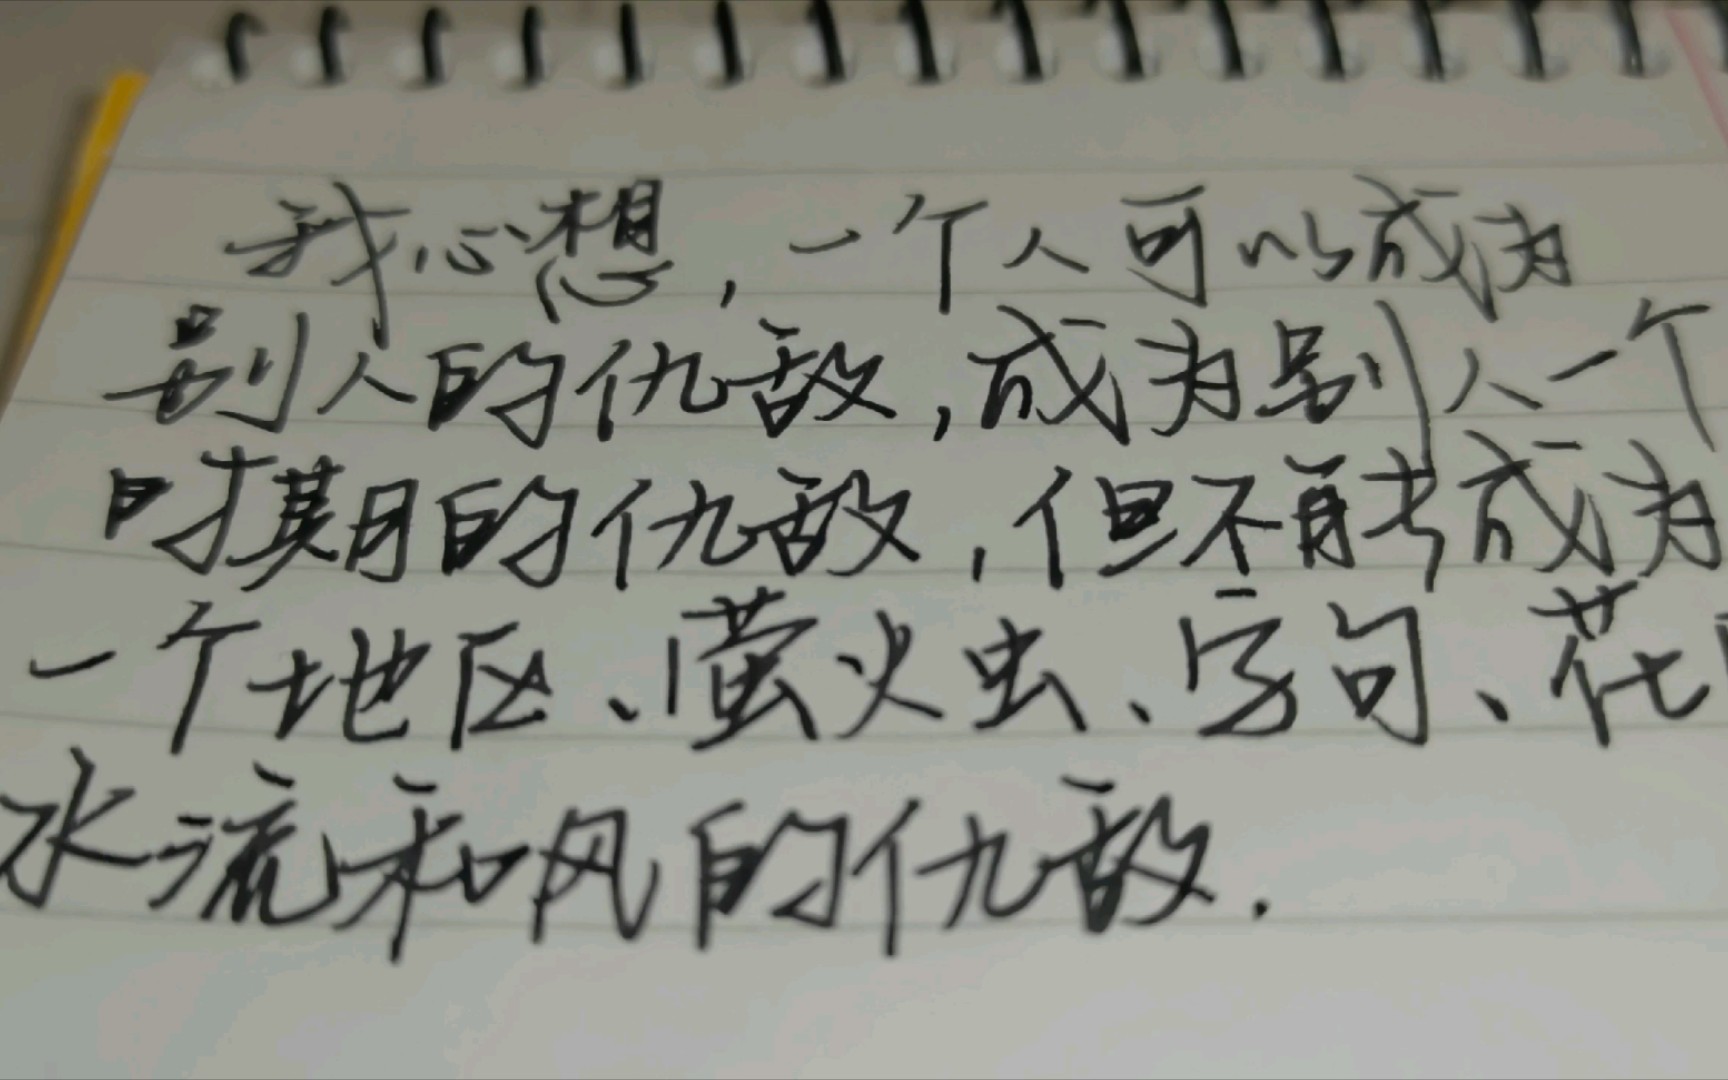 我心想,一个人可以成为
别人的仇敌,成为别人一个
时期的仇敌,但不能成为
一个地区、萤火虫、字句、花
水流和风的仇敌.